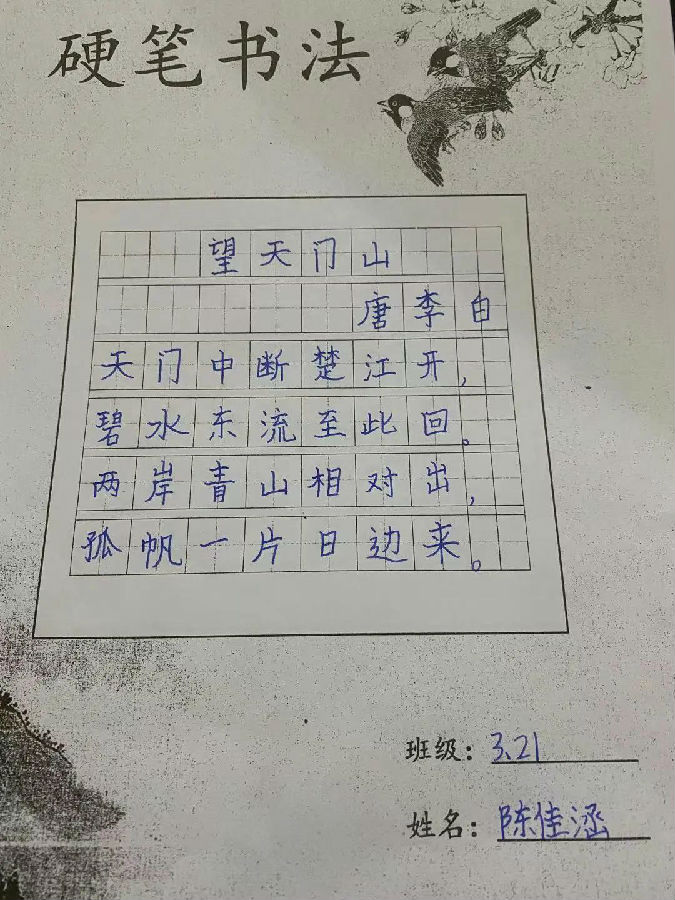 硬笔书法
望天门山
唐李白
天门中断楚江开，
碧水东流至此回。
两岸青山相对出，
孤帆一片日边来。
班级：3.21
姓名：陈佳涵